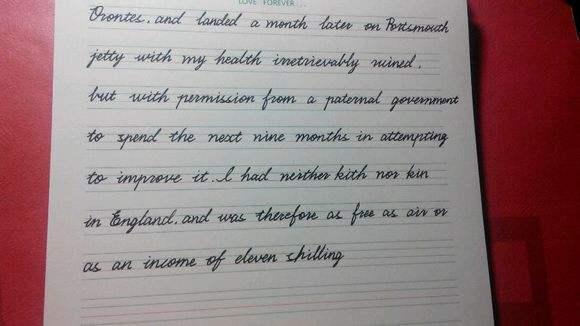 LOVE FOREVER...
Orontes. and landed a month later on Portsmouth
jetty with my health irretrievably ruined.
but with permission from a paternal government
to spend the next nine months in attempting
to improve it. I had neither kith nor kin
in England. and was therefore as free as air or
as an income of eleven shilling